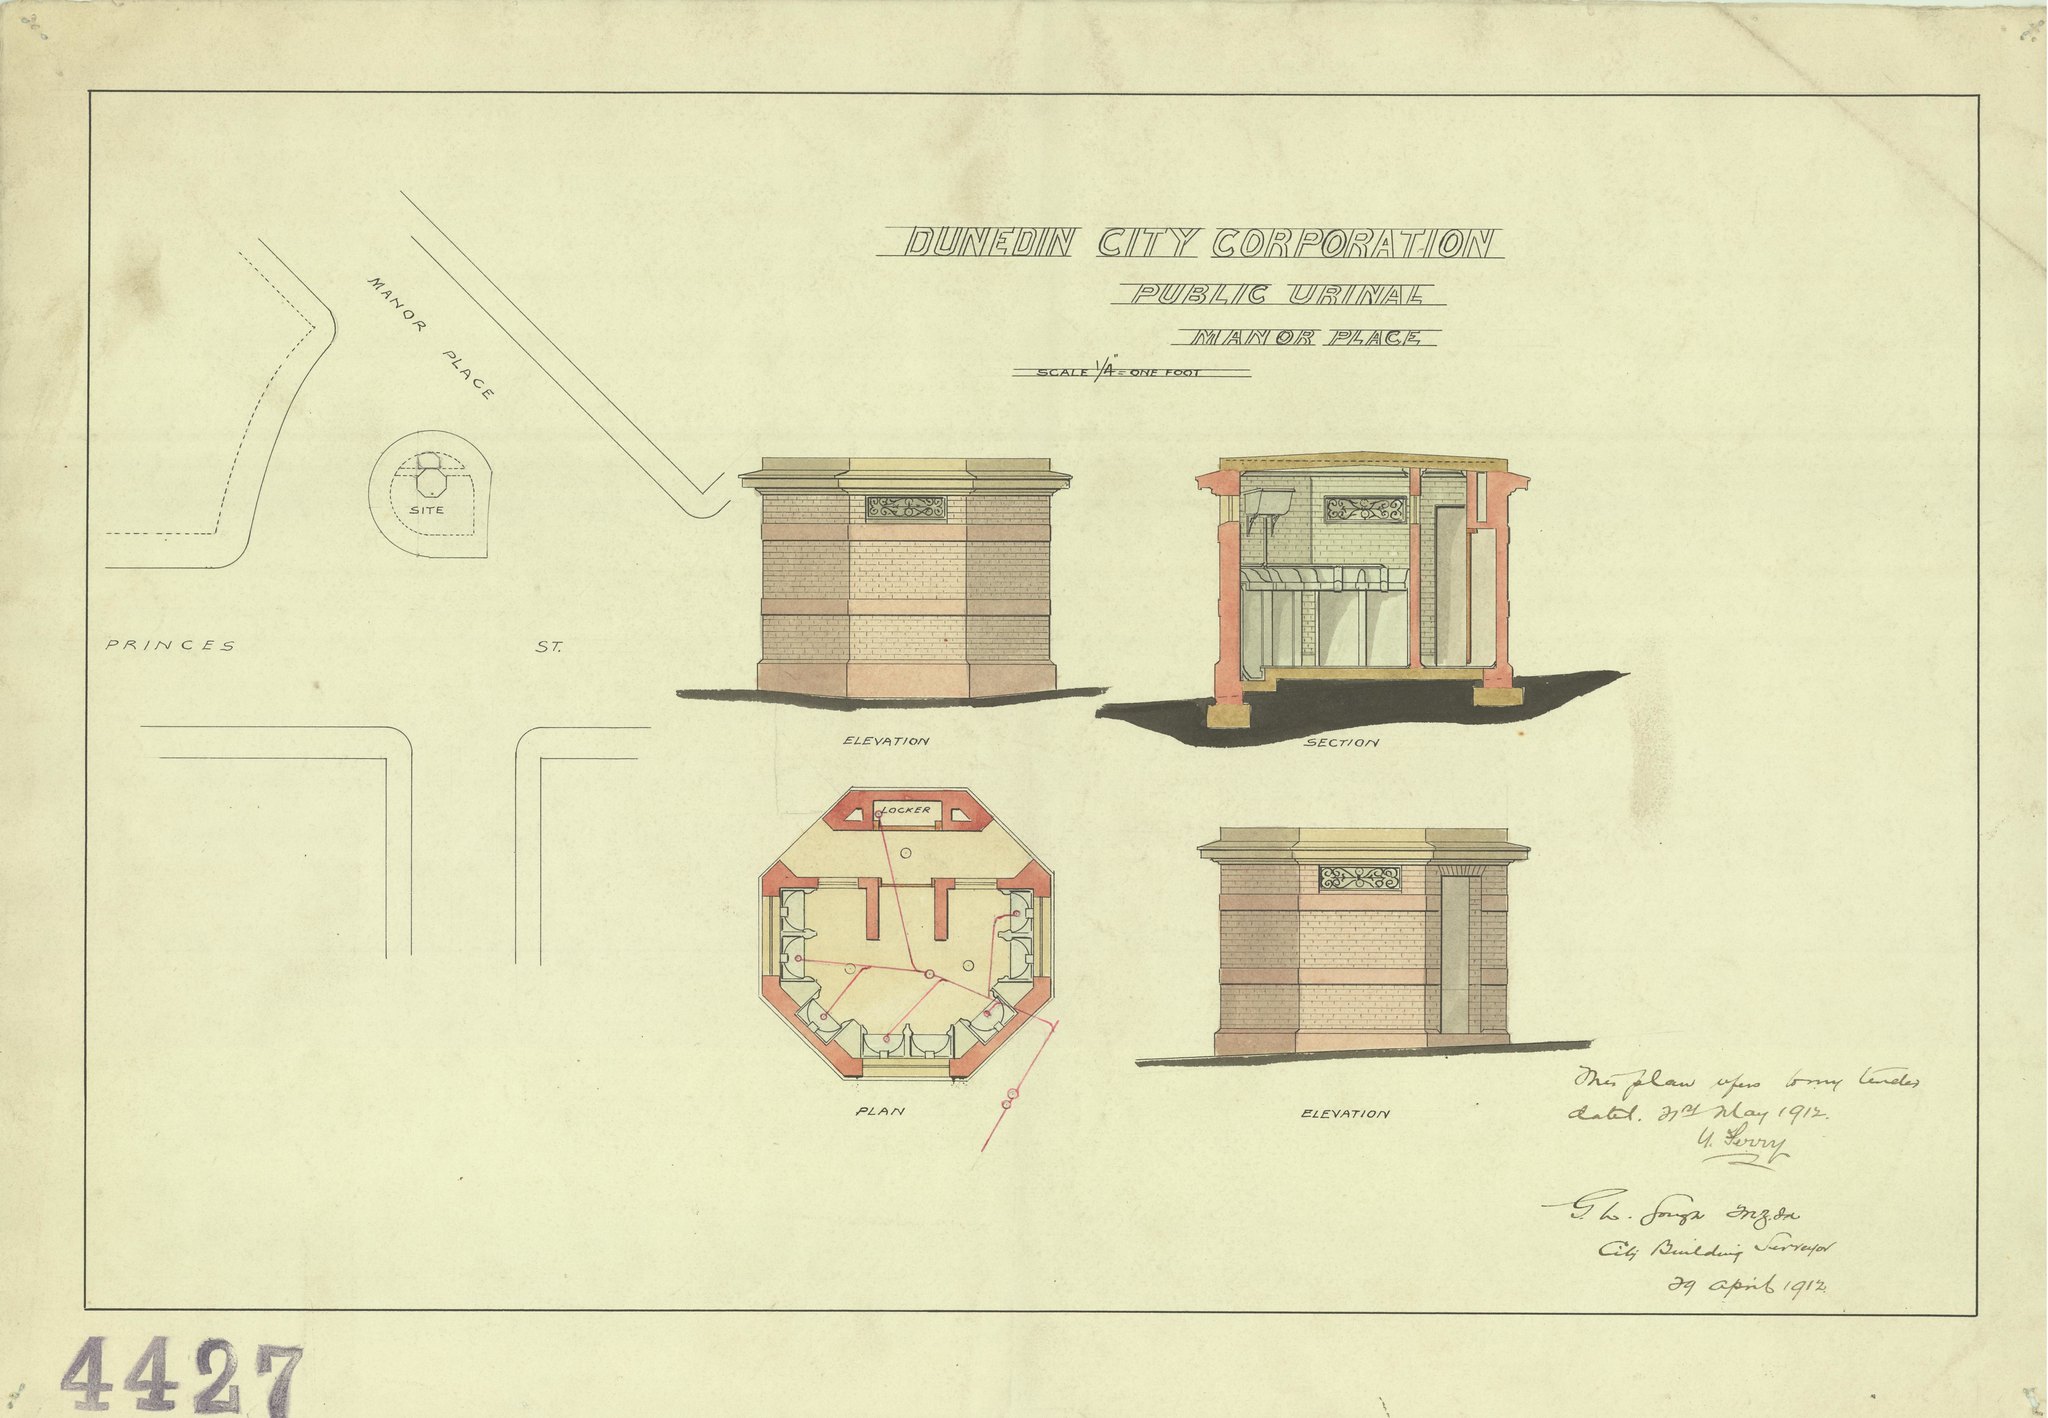 DUNEDIN CITY CORPORATION
PUBLIC URINAL
MANOR PLACE
SCALE 1/4" = ONE FOOT
MANOR PLACE
SITE
PRINCES ST.
ELEVATION
SECTION
LOCKER
PLAN
ELEVATION
This plan refers to my tender
dated May 1912.
G. W.
City Building Surveyor
29 April 1912
4427